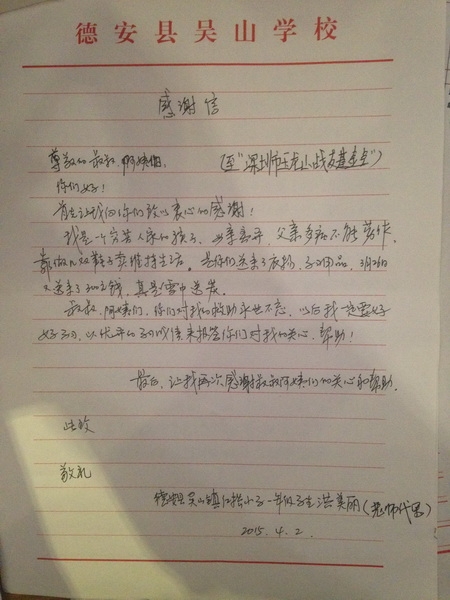 德安县吴山学校
感谢信
尊敬的叔叔、阿姨们： （至"深圳市 战友基金"）
你们好！
首先让我向你们致以衷心的感谢！
我是一个穷苦人家的孩子，母亲离开，父亲多病不能劳作，
靠做几双鞋子卖维持生活。是你们送来了衣物、学习用品，3月2日
又送来了300元钱，真是雪中送炭。
叔叔、阿姨们，你们对我的救助永世不忘，以后我一定要好
好学习，以优异的学习成绩来报答你们对我的关心、帮助！
最后，让我再次感谢叔叔阿姨们的关心和帮助。
此致
敬礼
德安县吴山镇 小学一年级学生洪美丽（老师代写）
2015.4.2.